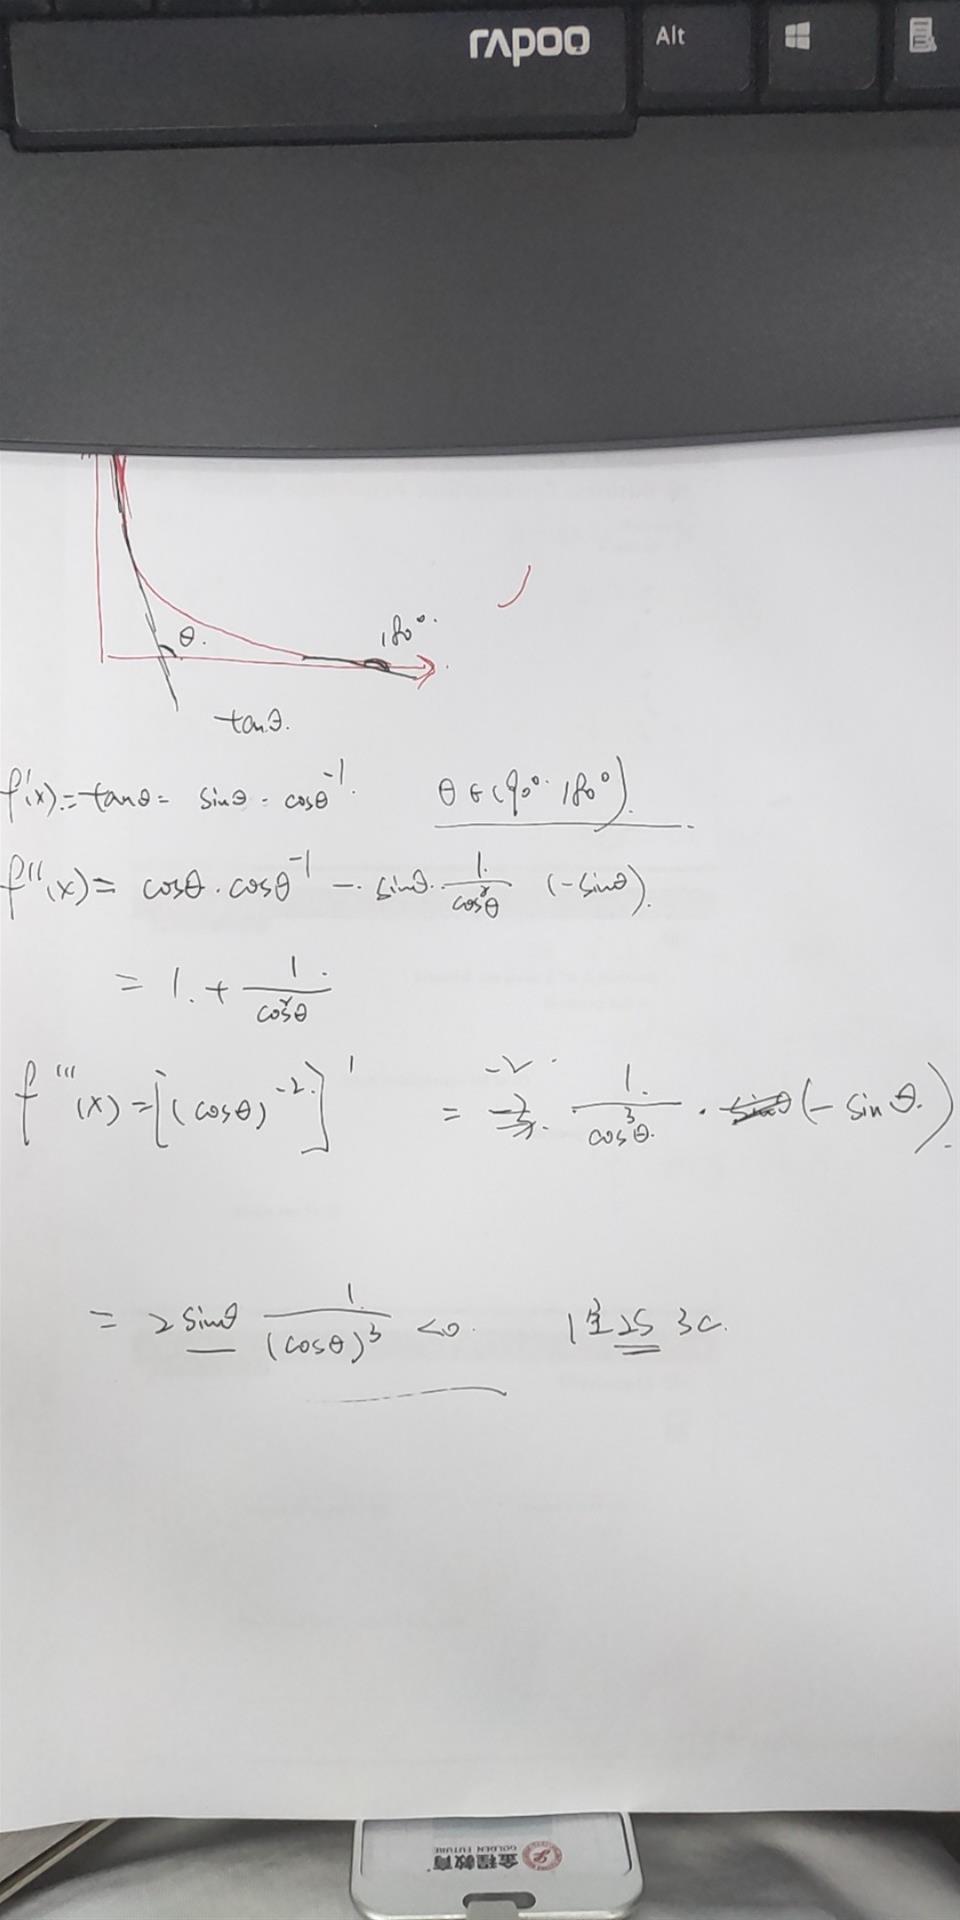 rapoo Alt
θ. 180°.
tanθ.
f'(x) = tanθ = sinθ · cosθ⁻¹. θ ∈ (90°. 180°).
f''(x) = cosθ · cosθ⁻¹ - · sinθ · 1/cos²θ (-sinθ).
= 1. + 1/cos²θ
f'''(x) = [(cosθ)⁻²]' = -2 · 1/cos³θ · (-sinθ.)
= 2 sinθ 1/(cosθ)³ <0. 1全 2S 3C.
金程教育
GOLDEN FUTURE